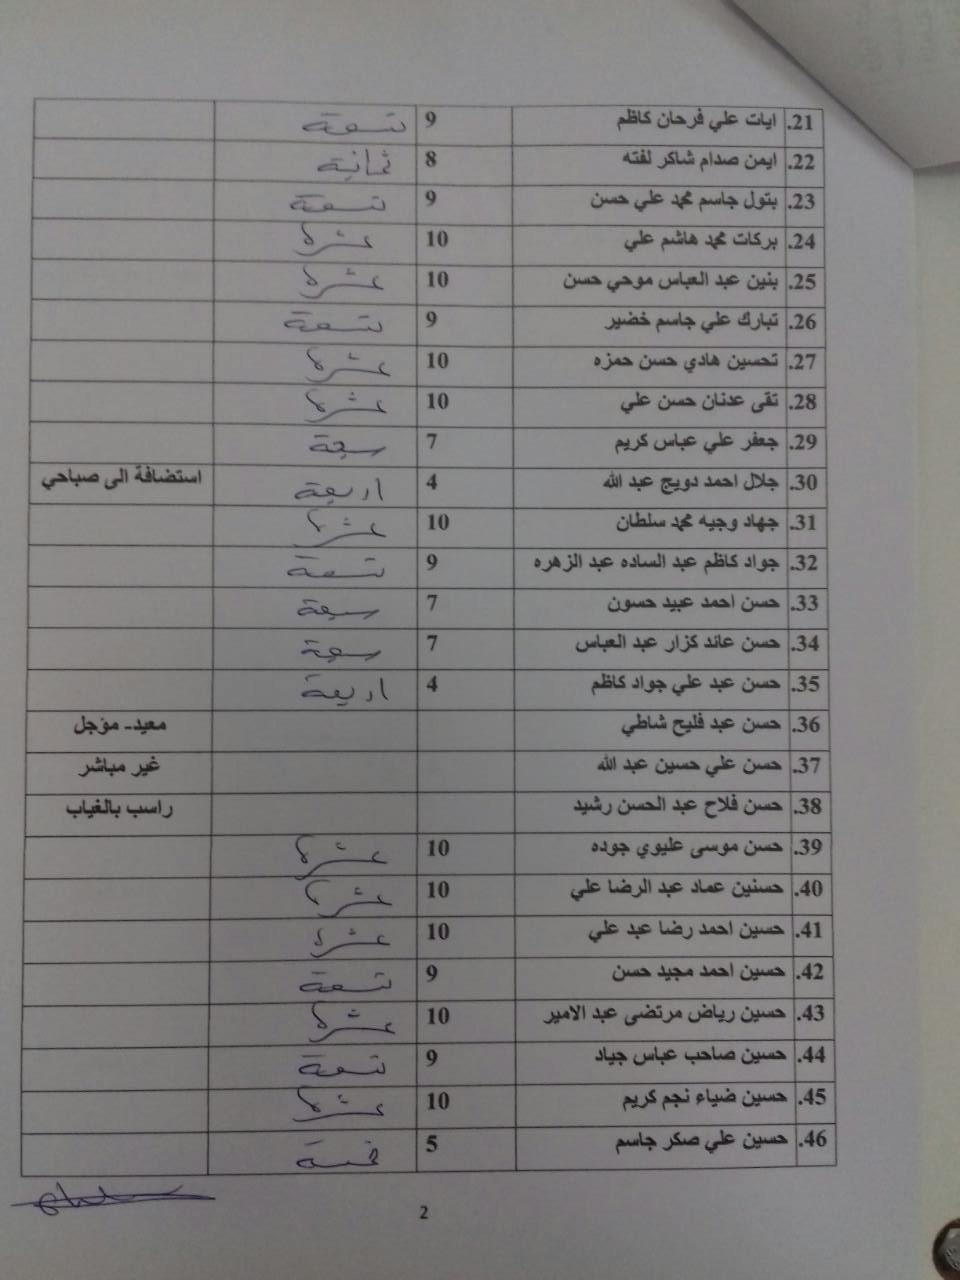 21. ايات علي فرحان كاظم 9 تسعة
22. ايمن صدام شاكر لفته 8 ثمانية
23. بتول جاسم محمد علي حسن 9 تسعة
24. بركات محمد هاشم علي 10 عشره
25. بنين عبد العباس موحي حسن 10 عشره
26. تبارك علي جاسم خضير 9 تسعة
27. تحسين هادي حسن حمزه 10 عشره
28. تقى عدنان حسن علي 10 عشره
29. جعفر علي عباس كريم 7 سبعة
30. جلال احمد دويج عبد الله 4 اربعة استضافة الى صباحي
31. جهاد وجيه محمد سلطان 10 عشره
32. جواد كاظم عبد الساده عبد الزهره 9 تسعة
33. حسن احمد عبيد حسون 7 سبعة
34. حسن عائد كزار عبد العباس 7 سبعة
35. حسن عبد علي جواد كاظم 4 اربعة
36. حسن عبد فليح شاطي معيد- مؤجل
37. حسن علي حسين عبد الله غير مباشر
38. حسن فلاح عبد الحسن رشيد راسب بالغياب
39. حسن موسى عليوي جوده 10 عشره
40. حسنين عماد عبد الرضا علي 10 عشره
41. حسين احمد رضا عبد علي 10 عشره
42. حسين احمد مجيد حسن 9 تسعة
43. حسين رياض مرتضى عبد الامير 10 عشره
44. حسين صاحب عباس جياد 9 تسعة
45. حسين ضياء نجم كريم 10 عشره
46. حسين علي صكر جاسم 5 خمسة
2